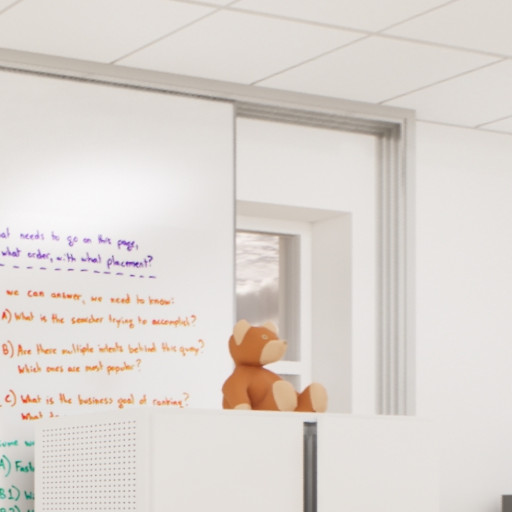 needs to go on this page,
what order, with what placement?
we can answer, we need to know:
A) What is the searcher trying to accomplish?
B) Are there multiple intents behind this query?
Which ones are most popular?
C) What is the business goal of ranking?
What
A)
B1)